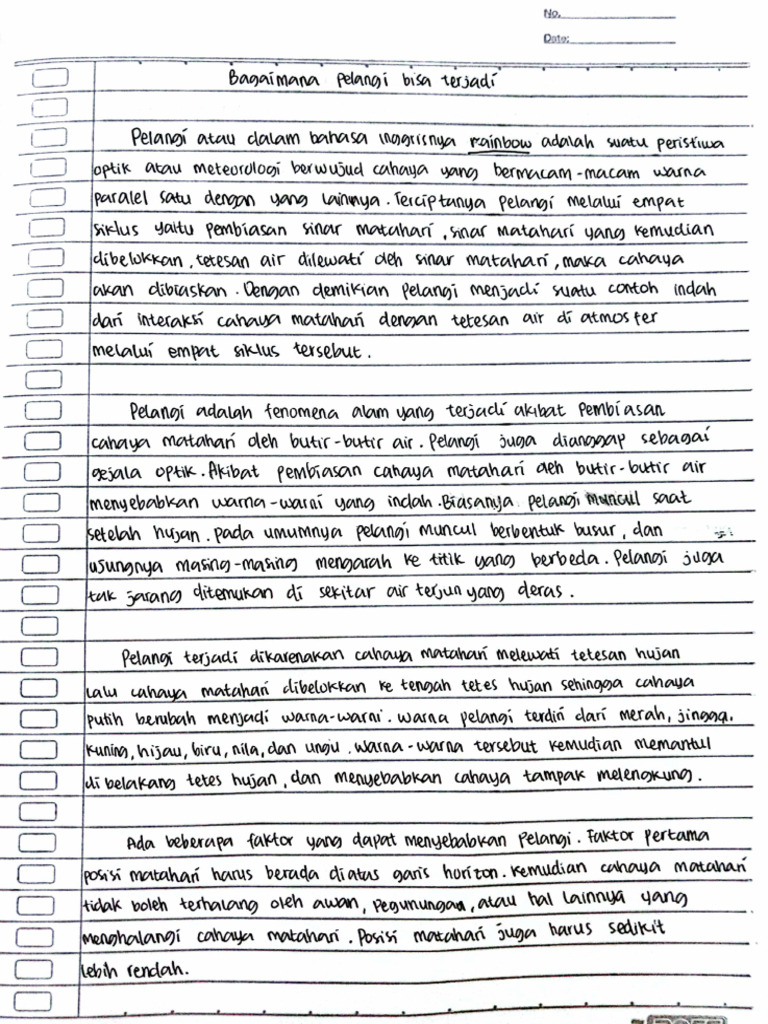 No.
Date:
Bagaimana pelangi bisa terjadi
Pelangi atau dalam bahasa inggrisnya rainbow adalah suatu peristiwa
optik atau meteorologi berwujud cahaya yang bermacam-macam warna
paralel satu dengan yang lainnya. Terciptanya pelangi melalui empat
siklus yaitu pembiasan sinar matahari, sinar matahari yang kemudian
dibelokkan, tetesan air dilewati oleh sinar matahari, maka cahaya
akan dibiaskan. Dengan demikian pelangi menjadi suatu contoh indah
dari interaksi cahaya matahari dengan tetesan air di atmosfer
melalui empat siklus tersebut.
Pelangi adalah fenomena alam yang terjadi akibat pembiasan
cahaya matahari oleh butir-butir air. Pelangi juga dianggap sebagai
gejala optik. Akibat pembiasan cahaya matahari oleh butir-butir air
menyebabkan warna-warni yang indah. Biasanya pelangi muncul saat
setelah hujan. pada umumnya pelangi muncul berbentuk busur, dan
usungnya masing-masing mengarah ke titik yang berbeda. Pelangi juga
tak jarang ditemukan di sekitar air terjun yang deras.
Pelangi terjadi dikarenakan cahaya matahari melewati tetesan hujan
lalu cahaya matahari dibelokkan ke tengah tetes hujan sehingga cahaya
putih berubah menjadi warna-warni. warna pelangi terdiri dari merah, jingga.
kuning, hijau, biru, nila, dan ungu. warna-warna tersebut kemudian memantul
di belakang tetes hujan, dan menyebabkan cahaya tampak melengkung.
Ada beberapa faktor yang dapat menyebabkan pelangi. Faktor pertama
posisi matahari harus berada diatas garis horiton. kemudian cahaya matahari
tidak boleh terhalang oleh awan, pegunungan, atau hal lainnya yang
menghalangi cahaya matahari. Posisi matahari juga harus sedikit
lebih rendah.